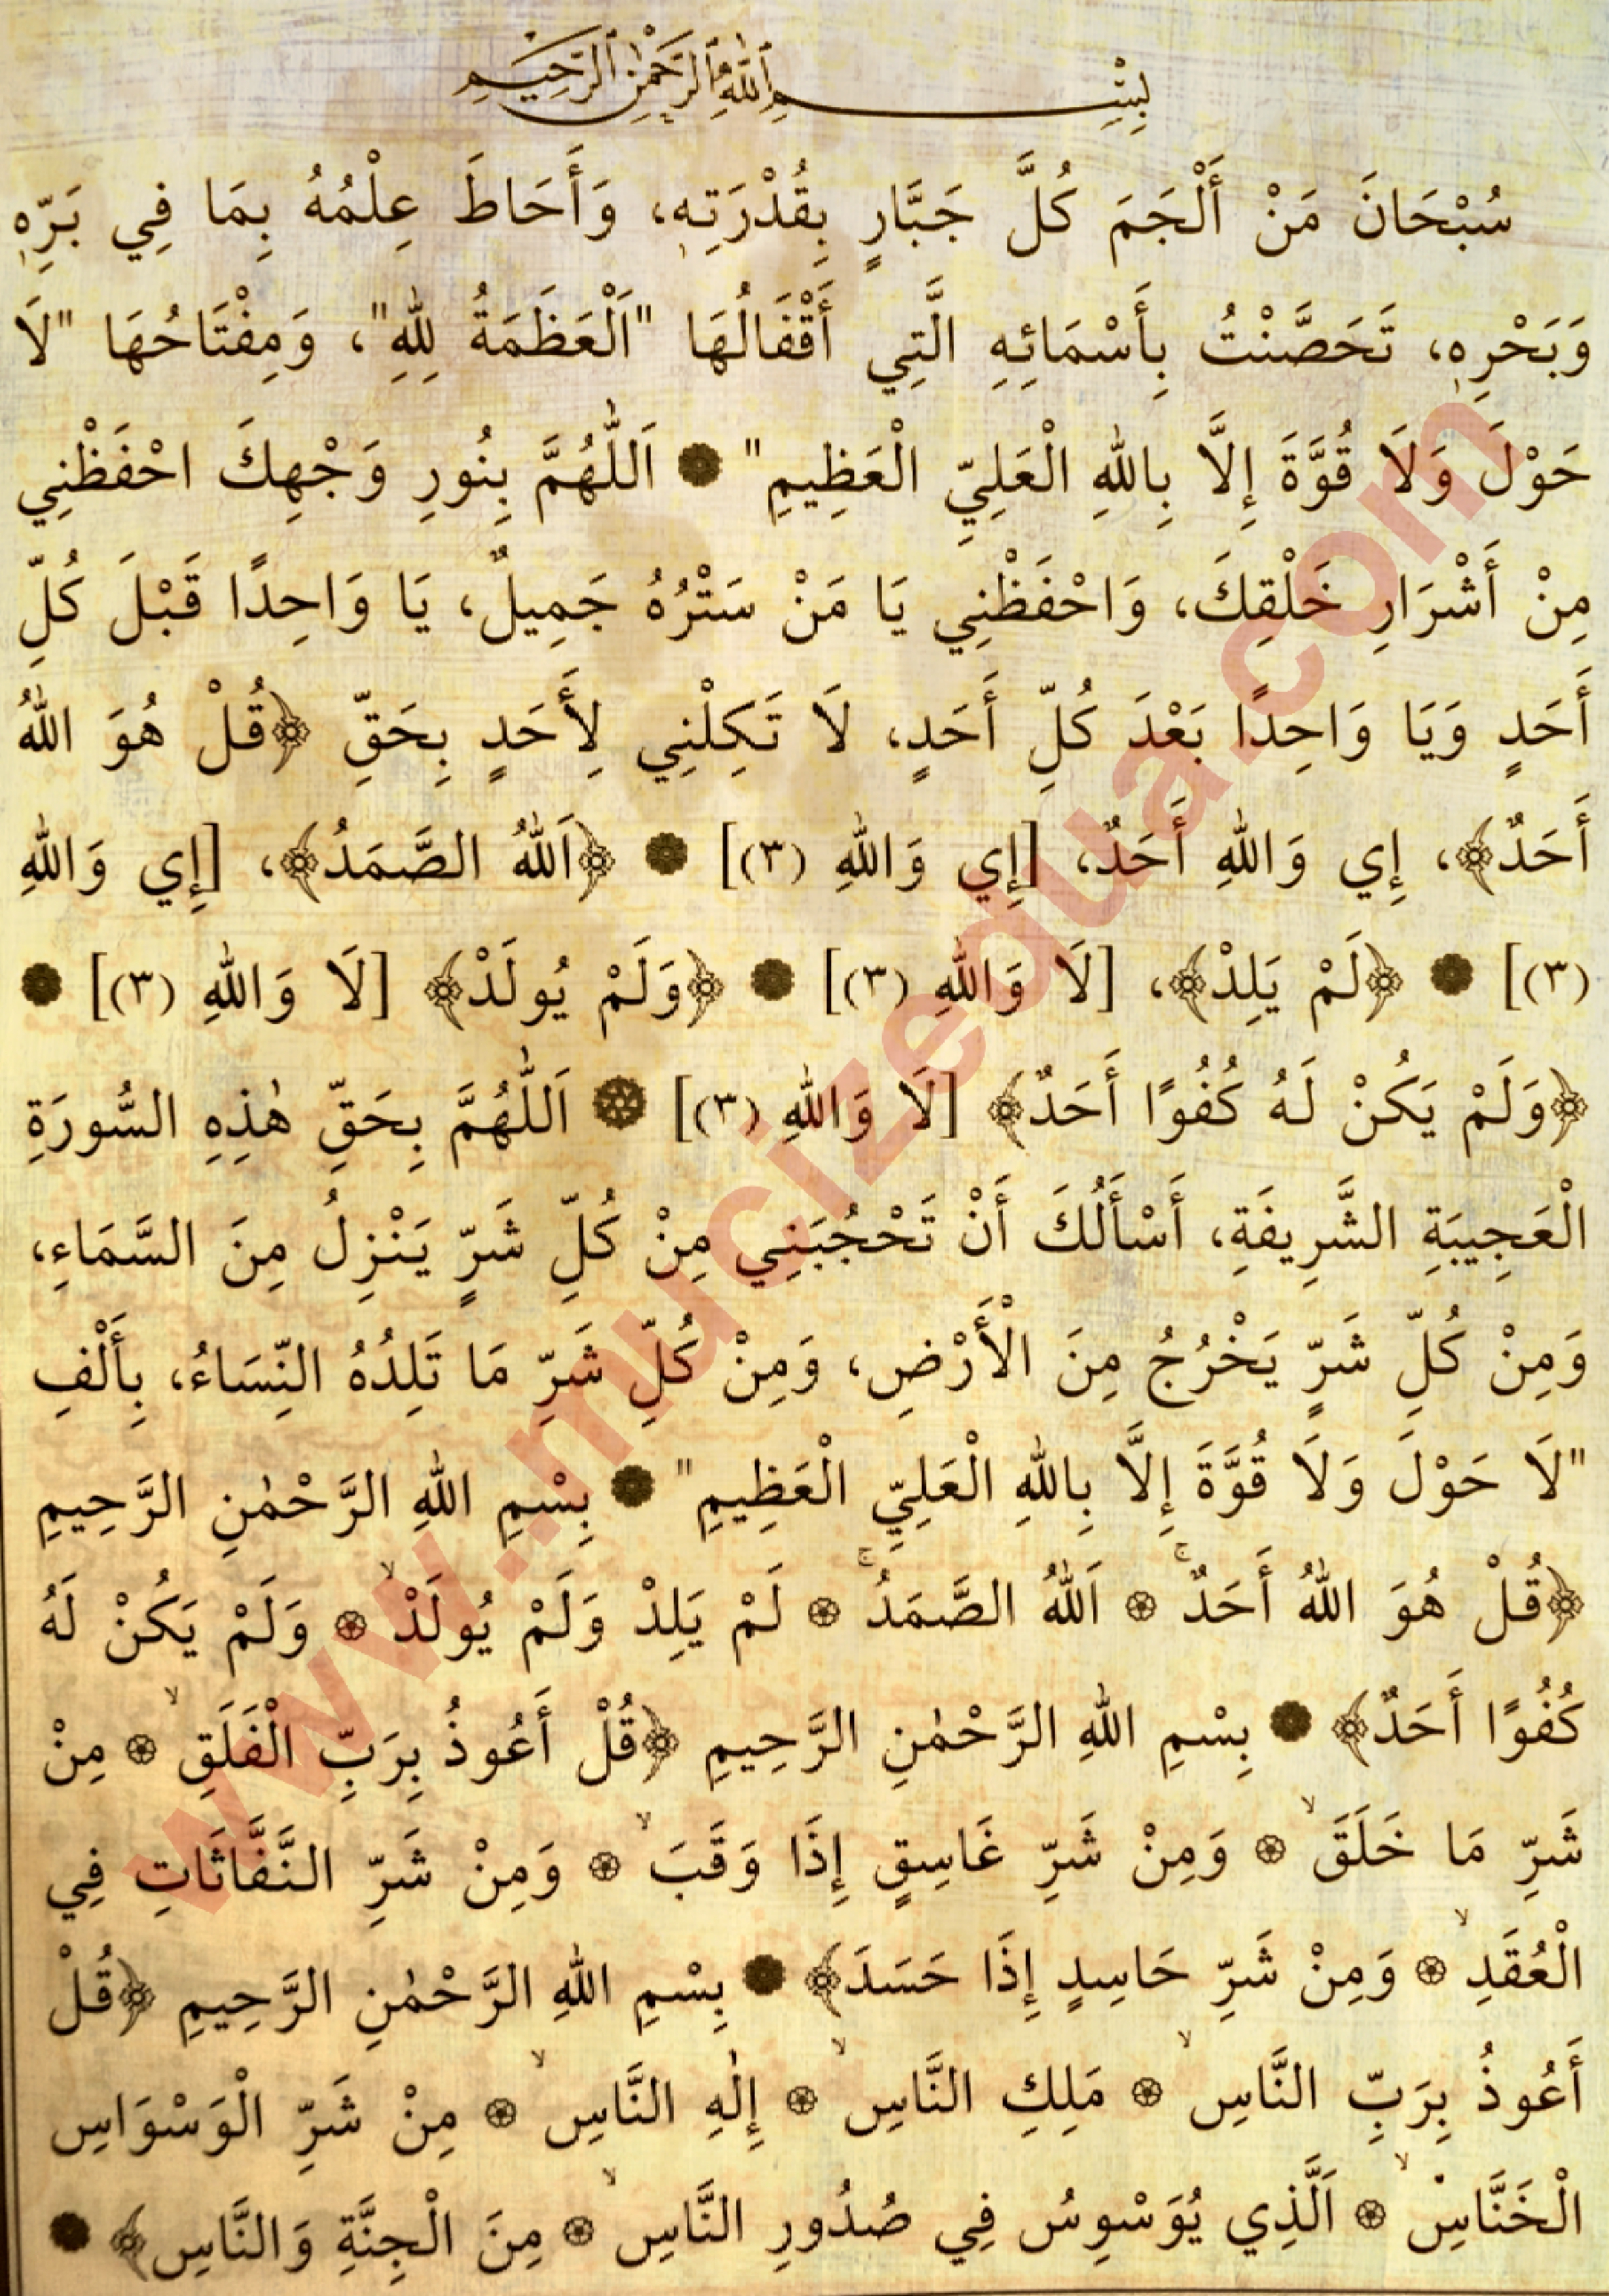 بِسْمِ ٱللّٰهِ ٱلرَّحْمٰنِ ٱلرَّحِيمِ
سُبْحَانَ مَنْ أَلْجَمَ كُلَّ جَبَّارٍ بِقُدْرَتِهٖ، وَأَحَاطَ عِلْمُهُ بِمَا فِي بَرِّهٖ
وَبَحْرِهٖ، تَحَصَّنْتُ بِأَسْمَائِهِ الَّتِي أَقْفَالُهَا "اَلْعَظَمَةُ لِلّٰهِ"، وَمِفْتَاحُهَا "لَا
حَوْلَ وَلَا قُوَّةَ إِلَّا بِاللّٰهِ الْعَلِيِّ الْعَظِيمِ" ❁ اَللّٰهُمَّ بِنُورِ وَجْهِكَ احْفَظْنِي
مِنْ أَشْرَارِ خَلْقِكَ، وَاحْفَظْنِي يَا مَنْ سَتْرُهُ جَمِيلٌ، يَا وَاحِدًا قَبْلَ كُلِّ
أَحَدٍ وَيَا وَاحِدًا بَعْدَ كُلِّ أَحَدٍ، لَا تَكِلْنِي لِأَحَدٍ بِحَقِّ ﴿قُلْ هُوَ اللّٰهُ
أَحَدٌ﴾، إِي وَاللّٰهِ أَحَدٌ، [إِي وَاللّٰهِ (٣)] ❁ ﴿اَللّٰهُ الصَّمَدُ﴾، [إِي وَاللّٰهِ
(٣)] ❁ ﴿لَمْ يَلِدْ﴾، [لَا وَاللّٰهِ (٣)] ❁ ﴿وَلَمْ يُولَدْ﴾ [لَا وَاللّٰهِ (٣)] ❁
﴿وَلَمْ يَكُنْ لَهُ كُفُوًا أَحَدٌ﴾ [لَا وَاللّٰهِ (٣)] ❁ اَللّٰهُمَّ بِحَقِّ هٰذِهِ السُّورَةِ
الْعَجِيبَةِ الشَّرِيفَةِ، أَسْأَلُكَ أَنْ تَحْجُبَنِي مِنْ كُلِّ شَرٍّ يَنْزِلُ مِنَ السَّمَاءِ،
وَمِنْ كُلِّ شَرٍّ يَخْرُجُ مِنَ الْأَرْضِ، وَمِنْ كُلِّ شَرِّ مَا تَلِدُهُ النِّسَاءُ، بِأَلْفِ
"لَا حَوْلَ وَلَا قُوَّةَ إِلَّا بِاللّٰهِ الْعَلِيِّ الْعَظِيمِ" ❁ بِسْمِ اللّٰهِ الرَّحْمٰنِ الرَّحِيمِ
﴿قُلْ هُوَ اللّٰهُ أَحَدٌۚ ❁ اَللّٰهُ الصَّمَدُۚ ❁ لَمْ يَلِدْ وَلَمْ يُولَدْۙ ❁ وَلَمْ يَكُنْ لَهُ
كُفُوًا أَحَدٌ﴾ ❁ بِسْمِ اللّٰهِ الرَّحْمٰنِ الرَّحِيمِ ﴿قُلْ أَعُوذُ بِرَبِّ الْفَلَقِۙ ❁ مِنْ
شَرِّ مَا خَلَقَۙ ❁ وَمِنْ شَرِّ غَاسِقٍ إِذَا وَقَبَۙ ❁ وَمِنْ شَرِّ النَّفَّاثَاتِ فِي
الْعُقَدِۙ ❁ وَمِنْ شَرِّ حَاسِدٍ إِذَا حَسَدَ﴾ ❁ بِسْمِ اللّٰهِ الرَّحْمٰنِ الرَّحِيمِ ﴿قُلْ
أَعُوذُ بِرَبِّ النَّاسِۙ ❁ مَلِكِ النَّاسِۙ ❁ إِلٰهِ النَّاسِۙ ❁ مِنْ شَرِّ الْوَسْوَاسِ
الْخَنَّاسِۙ ❁ اَلَّذِي يُوَسْوِسُ فِي صُدُورِ النَّاسِۙ ❁ مِنَ الْجِنَّةِ وَالنَّاسِ﴾ ❁
www.mucizedua.com